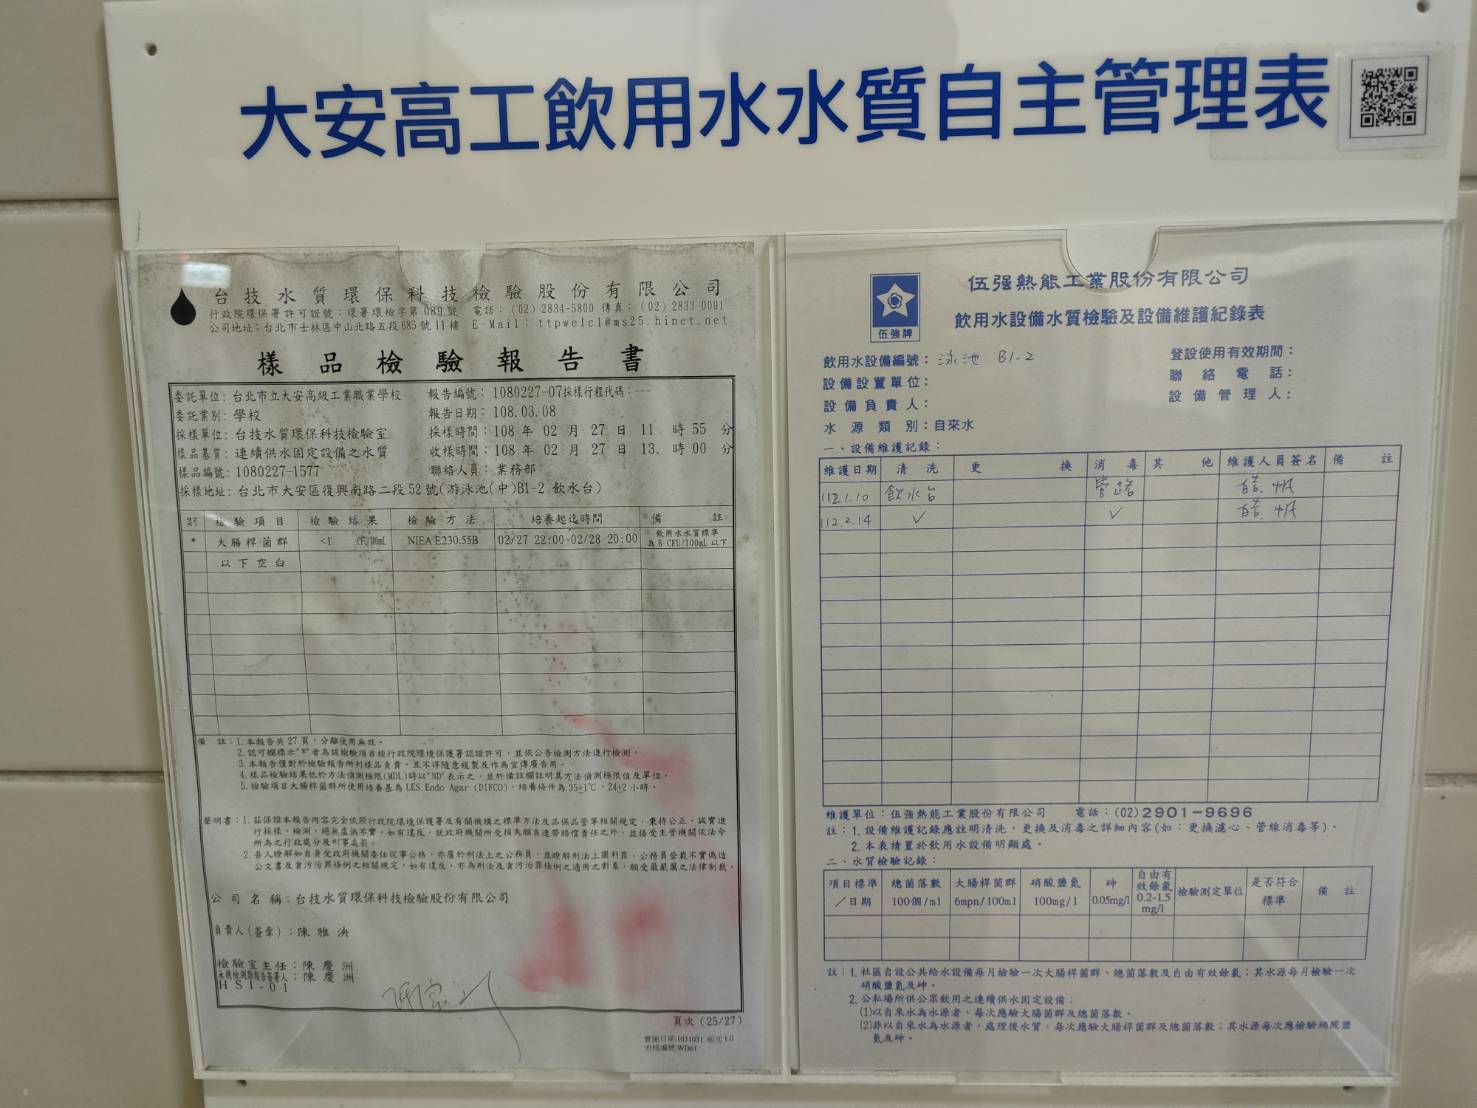 大安高工飲用水水質自主管理表
台技水質環保科技檢驗股份有限公司
行政院環保署許可證號：環署環檢字第089號 電話：(02) 2834-5800 傳真：(02) 2833-0091
公司地址：台北市士林區中山北路五段685號11樓 E-Mail： ttpwelcl@ms25.hinet.net
樣品檢驗報告書
委託單位：台北市立大安高級工業職業學校 報告編號：1080227-07採樣行程代碼：---
委託業別：學校 報告日期：108.03.08
採樣單位：台技水質環保科技檢驗室 採樣時間：108 年 02 月 27 日 11 時 55 分
樣品基質：連續供水固定設備之水質 收樣時間：108 年 02 月 27 日 13. 時 00 分
樣品編號：1080227-1577 聯絡人員：業務部
採樣地址：台北市大安區復興南路二段52號(游泳池(中)B1-2 飲水台)
檢驗項目 檢驗結果 檢驗方法 培養起迄時間 備註
* 大腸桿菌群 <1 CFU/100mL NIEA E230.55B 02/27 22:00~02/28 20:00 飲用水水質標準
為 6 CFU/100mL 以下
以下空白
備 註：1.本報告共27頁，分離使用無效。
2.認可欄標示"*"者為該檢驗項目經行政院環境保護署認證許可，並依公告檢測方法進行檢測。
3.本報告僅對於檢驗報告所列樣品負責，且不得隨意複製及作為宣傳廣告用。
4.樣品檢驗結果低於方法偵測極限(MDL)時以"ND"表示之，並於備註欄註明其方法偵測極限值及單位。
5.檢驗項目大腸桿菌群所使用培養基為LES Endo Agar (DIFCO)，培養條件為35±1℃，24±2小時。
聲明書：1.茲保證本報告內容完全依照行政院環境保護署及有關機構之標準方法及品保品管等相關規定，秉持公正、誠實進
行採樣、檢測，絕無虛偽不實，如有違反，就政府機關所受損失願負連帶賠償責任之外，並接受主管機關依法令
所為之行政處分及刑事處罰。
2.吾人瞭解如自身受政府機關委任從事公務，亦屬於刑法上之公務員，並瞭解刑法上圖利罪、公務員登載不實偽造
公文書及貪污治罪條例之相關規定，如有違反，亦為刑法及貪污治罪條例之適用之對象，願受最嚴厲之法律制裁。
公司名稱：台技水質環保科技檢驗股份有限公司
負責人(簽章)：陳雅泱
檢驗室主任：陳慶洲
無機檢測類報告簽署人：陳慶洲
HSI-01
頁次 (25/27)
實施日期:1031031 版次1.0
表格編號:WD61
伍強牌
伍強熱能工業股份有限公司
飲用水設備水質檢驗及設備維護紀錄表
飲用水設備編號：泳池 B1-2 登設使用有效期間：
設備設置單位： 聯絡電話：
設備負責人： 設備管理人：
水源類別：自來水
一、設備維護記錄：
維護日期 清洗 更換 消毒 其他 維護人員簽名 備註
112.1.10 飲水台 管路
112.2.14 ✓ ✓
維護單位：伍強熱能工業股份有限公司 電話：(02)2901-9696
註：1.設備維護記錄應註明清洗，更換及消毒之詳細內容(如：更換濾心、管線消毒等)。
2.本表請置於飲用水設備明顯處。
二、水質檢驗記錄：
項目標準／日期 總菌落數 100個/ml 大腸桿菌群 6mpn/100ml 硝酸鹽氮 100mg/l 砷 0.05mg/l 自由有效餘氯 0.2-1.5 mg/l 檢驗測定單位 是否符合標準 備註
註：1.社區自設公共給水設備每月檢驗一次大腸桿菌群、總菌落數及自由有效餘氯；其水源每月檢驗一次
硝酸鹽氮及砷。
2.公私場所供公眾飲用之連續供水固定設備：
(1)以自來水為水源者，每次應驗大腸菌群及總菌落數。
(2)非以自來水為水源者，處理後水質，每次應驗大腸桿菌群及總菌落數；其水源每次應檢驗硝酸鹽
氮及砷。